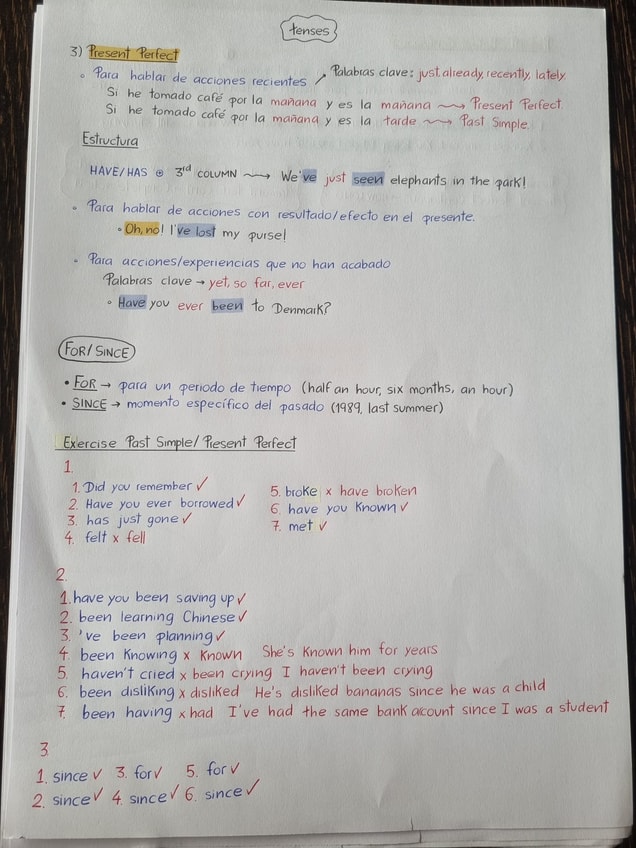 tenses
3) Present Perfect
◦ Para hablar de acciones recientes ↗ Palabras clave: just, already, recently, lately.
Si he tomado café por la mañana y es la mañana ⇝ Present Perfect.
Si he tomado café por la mañana y es la tarde ⇝ Past Simple.
Estructura
HAVE/HAS ⊕ 3rd COLUMN ⇝ We've just seen elephants in the park!
◦ Para hablar de acciones con resultado/efecto en el presente.
◦ Oh, no! I've lost my purse!
◦ Para acciones/experiencias que no han acabado
Palabras clave → yet, so far, ever
◦ Have you ever been to Denmark?
FOR/SINCE
• FOR → para un periodo de tiempo (half an hour, six months, an hour)
• SINCE → momento específico del pasado (1989, last summer)
Exercise Past Simple/Present Perfect
1.
1. Did you remember ✓
2. Have you ever borrowed ✓
3. has just gone ✓
4. felt x fell
5. broke x have broken
6. have you known ✓
7. met ✓
2.
1. have you been saving up ✓
2. been learning Chinese ✓
3. 've been planning ✓
4. been knowing x known She's known him for years
5. haven't cried x been crying I haven't been crying
6. been disliking x disliked He's disliked bananas since he was a child
7. been having x had I've had the same bank acount since I was a student
3.
1. since ✓ 3. for ✓ 5. for ✓
2. since ✓ 4. since ✓ 6. since ✓